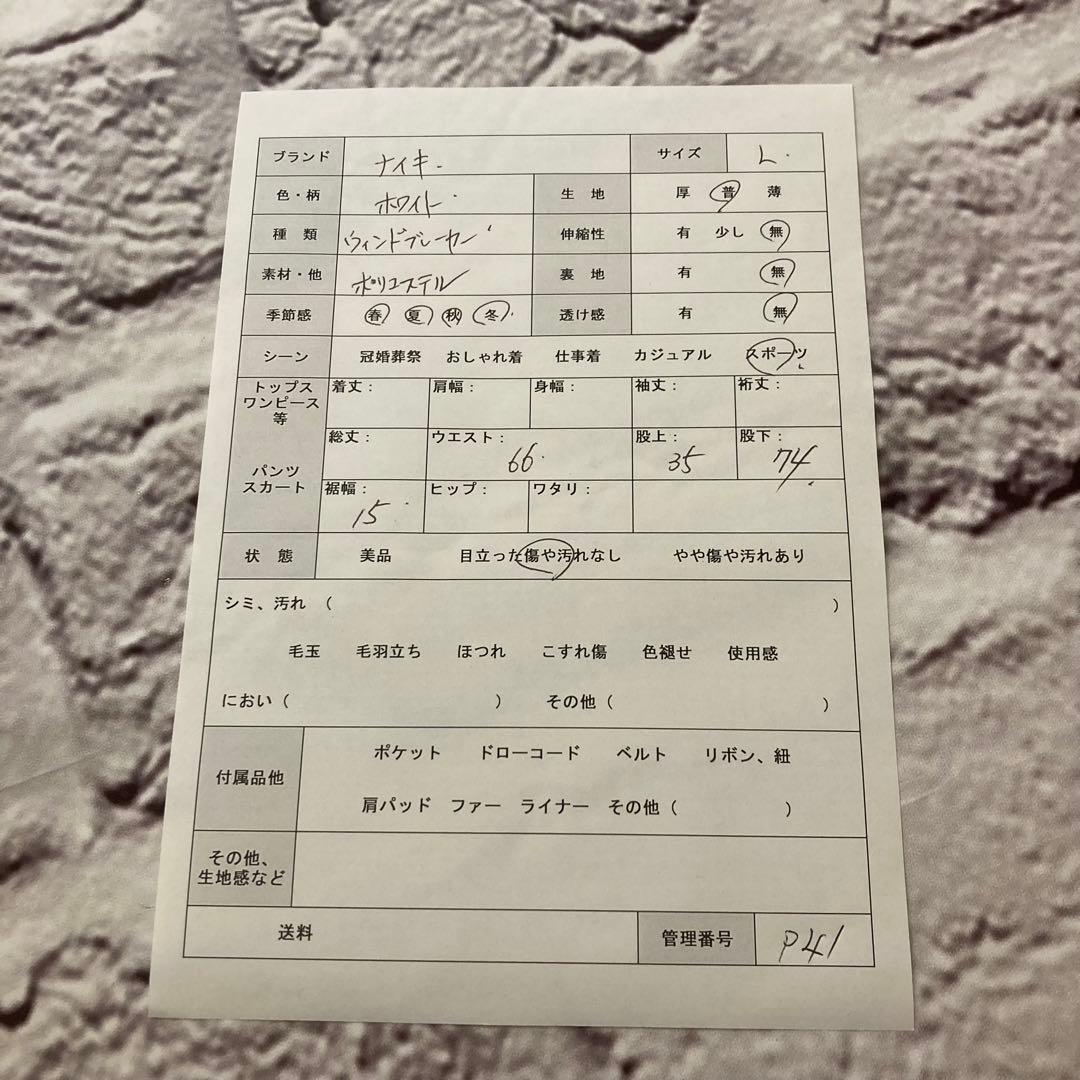 ブランド ナイキ サイズ L
色・柄 ホワイト 生 地 厚 普 薄
種 類 ウィンドブレーカー 伸縮性 有 少し 無
素材・他 ポリエステル 裏 地 有 無
季節感 春 夏 秋 冬 透け感 有 無
シーン 冠婚葬祭 おしゃれ着 仕事着 カジュアル スポーツ
トップス
ワンピース
等
着丈: 肩幅: 身幅: 袖丈: 裄丈:
パンツ
スカート
総丈: ウエスト: 66 股上: 35 股下: 74
裾幅: 15 ヒップ: ワタリ:
状 態 美品 目立った傷や汚れなし やや傷や汚れあり
シミ、汚れ ( )
毛玉 毛羽立ち ほつれ こすれ傷 色褪せ 使用感
におい ( ) その他 ( )
付属品他
ポケット ドローコード ベルト リボン、紐
肩パッド ファー ライナー その他 ( )
その他、
生地感など
送料 管理番号 P41